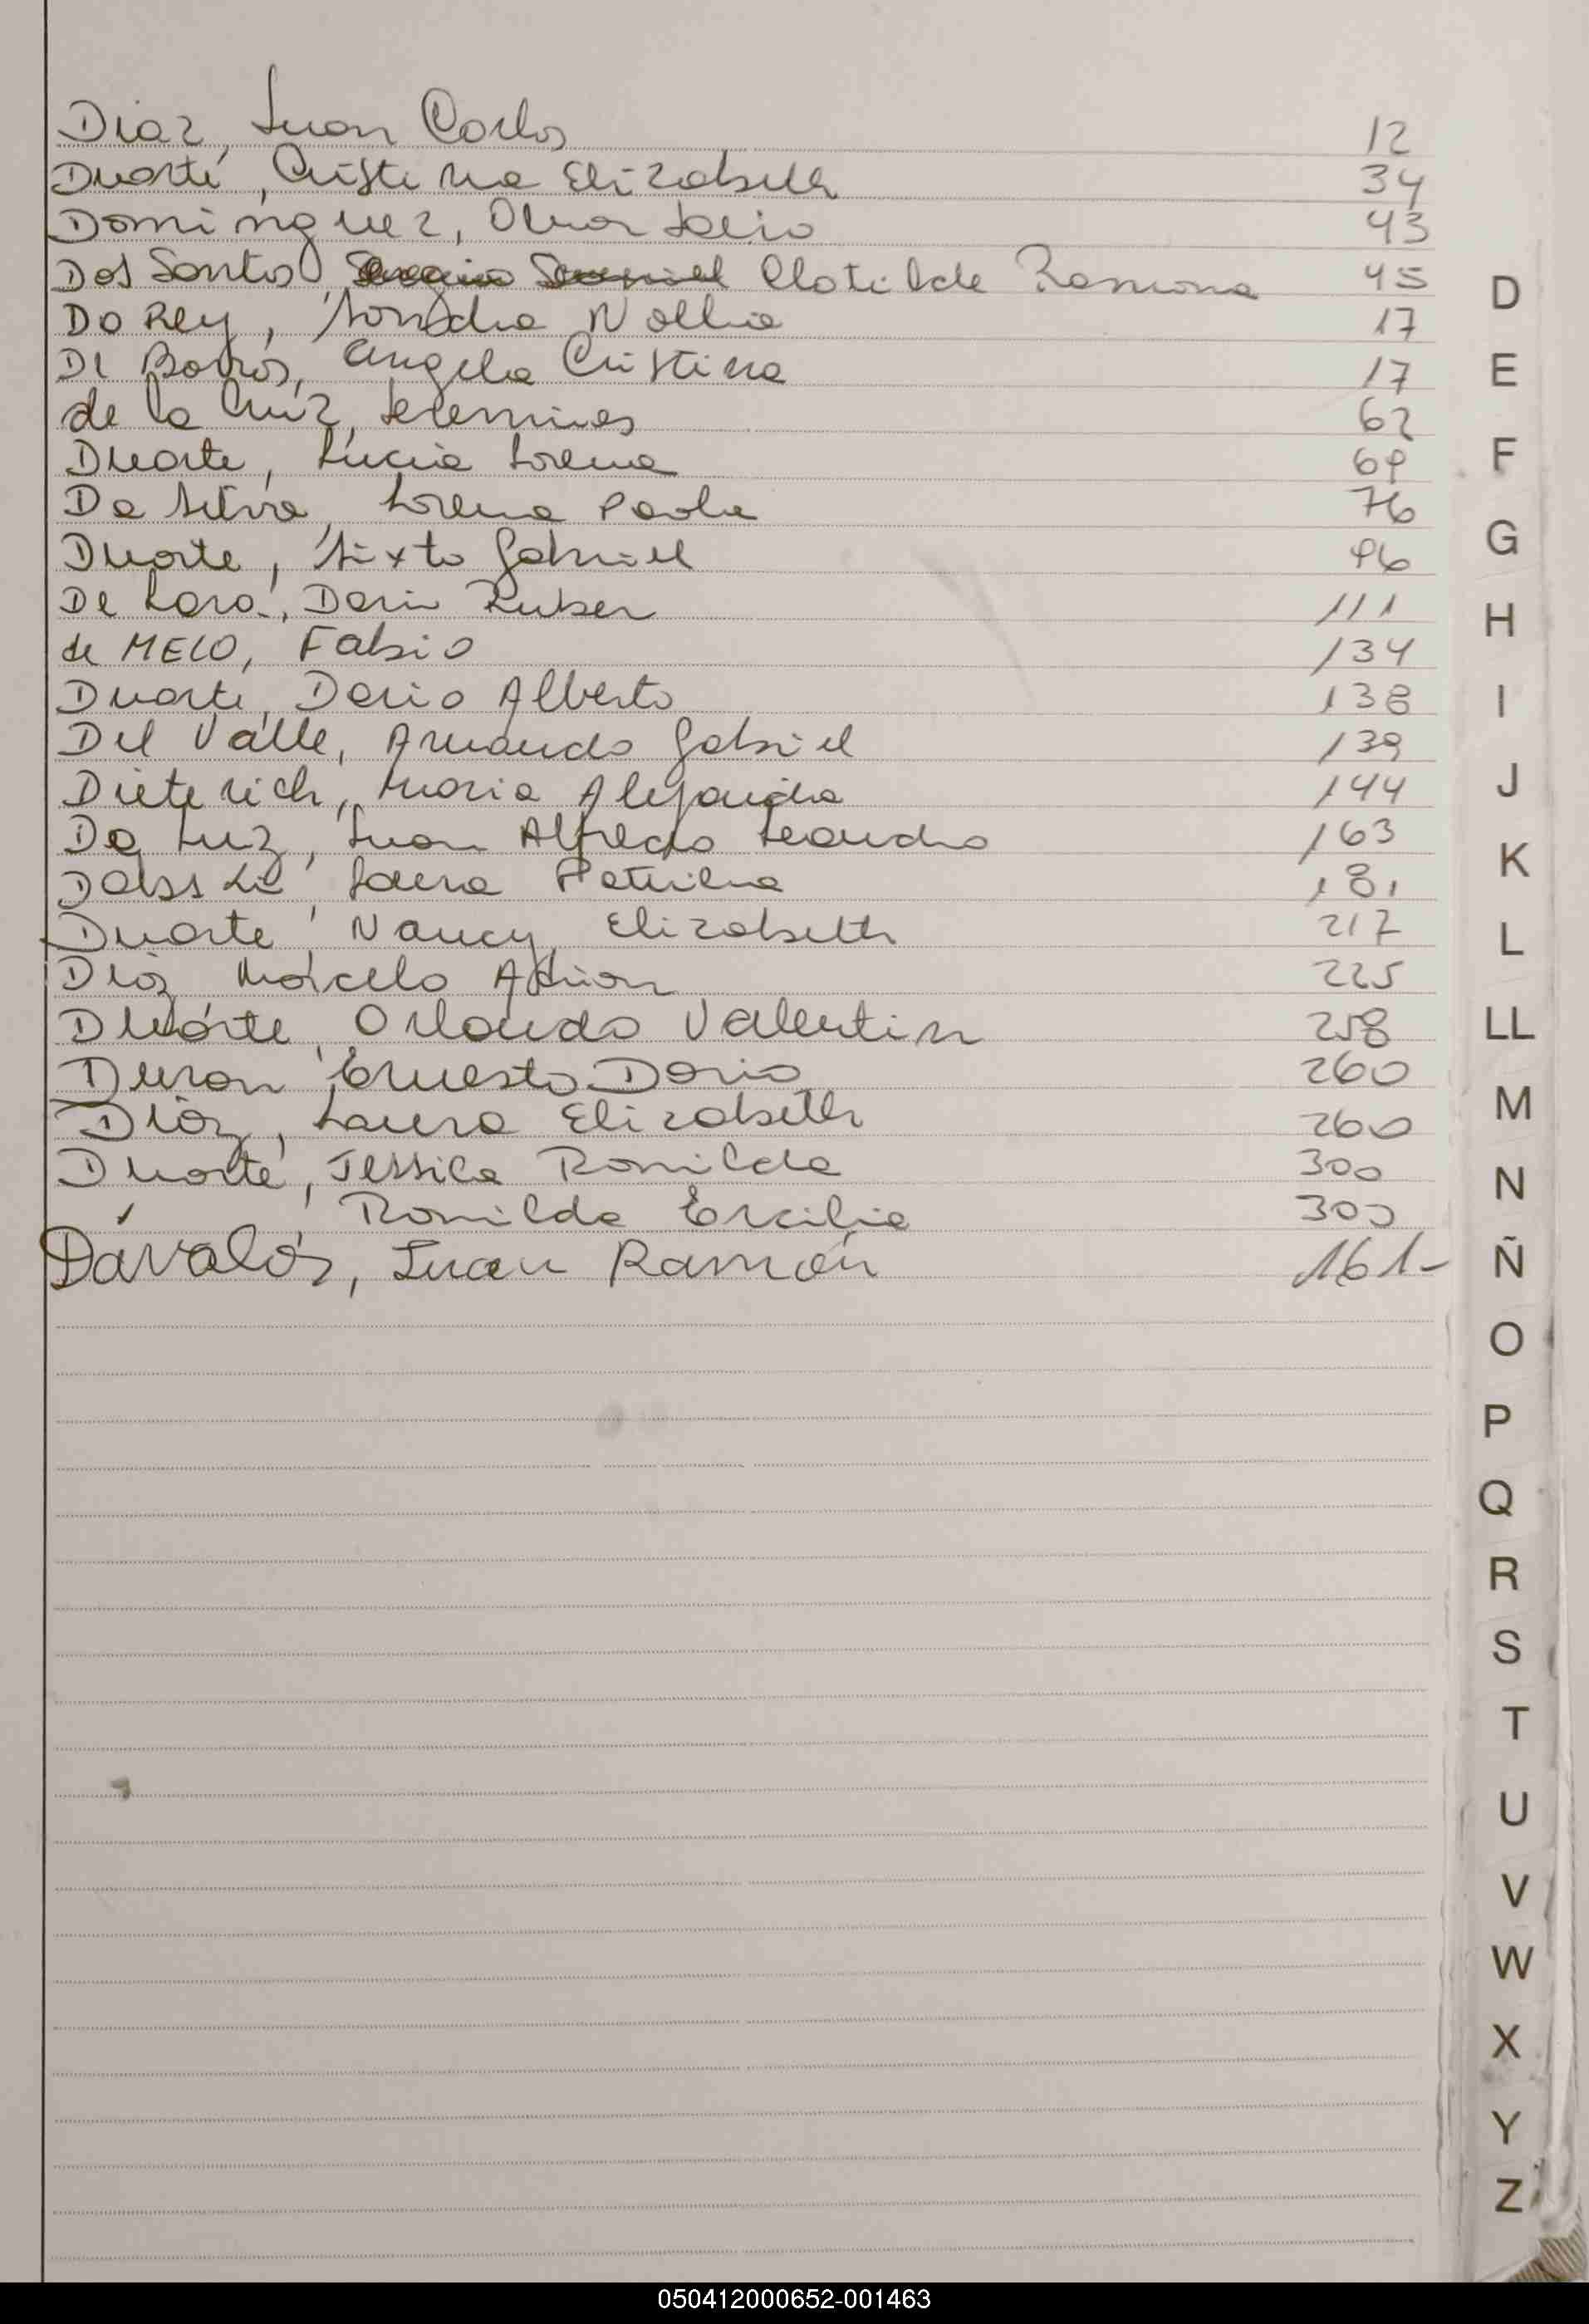 Diaz, Juan Carlos 12
Duarte, Cristina Elizabeth 34
Dominguez, Omar 43
Dos Santos, Clotilde Ramona 45
Do Rey, Sandra Nollia 17
De Barros, Angela Cristina 17
de la Cruz, Jeremias 62
Duarte, Lucia Lorena 69
Da Silva, Lorena Paola 76
Duarte, Sixto Gabriel 96
De Lara, Dario Ruben 111
de MELO, Fabio 134
Duarte, Dario Alberto 138
Del Valle, Armando Gabriel 139
Dieterich, Maria Alejandra 144
Da Luz, Juan Alfredo Leandro 163
Laura 181
Duarte, Nancy Elizabeth 217
Diaz Marcelo Adrian 225
Duarte, Orlando Valentin 258
Duran, Ernesto Dario 260
Diaz, Laura Elizabeth 260
Duarte, Jessica Romilda 300
Romilda Ercilia 300
Dávalos, Juan Ramón 161-
D
E
F
G
H
I
J
K
L
LL
M
N
Ñ
O
P
Q
R
S
T
U
V
W
X
Y
Z
050412000652-001463